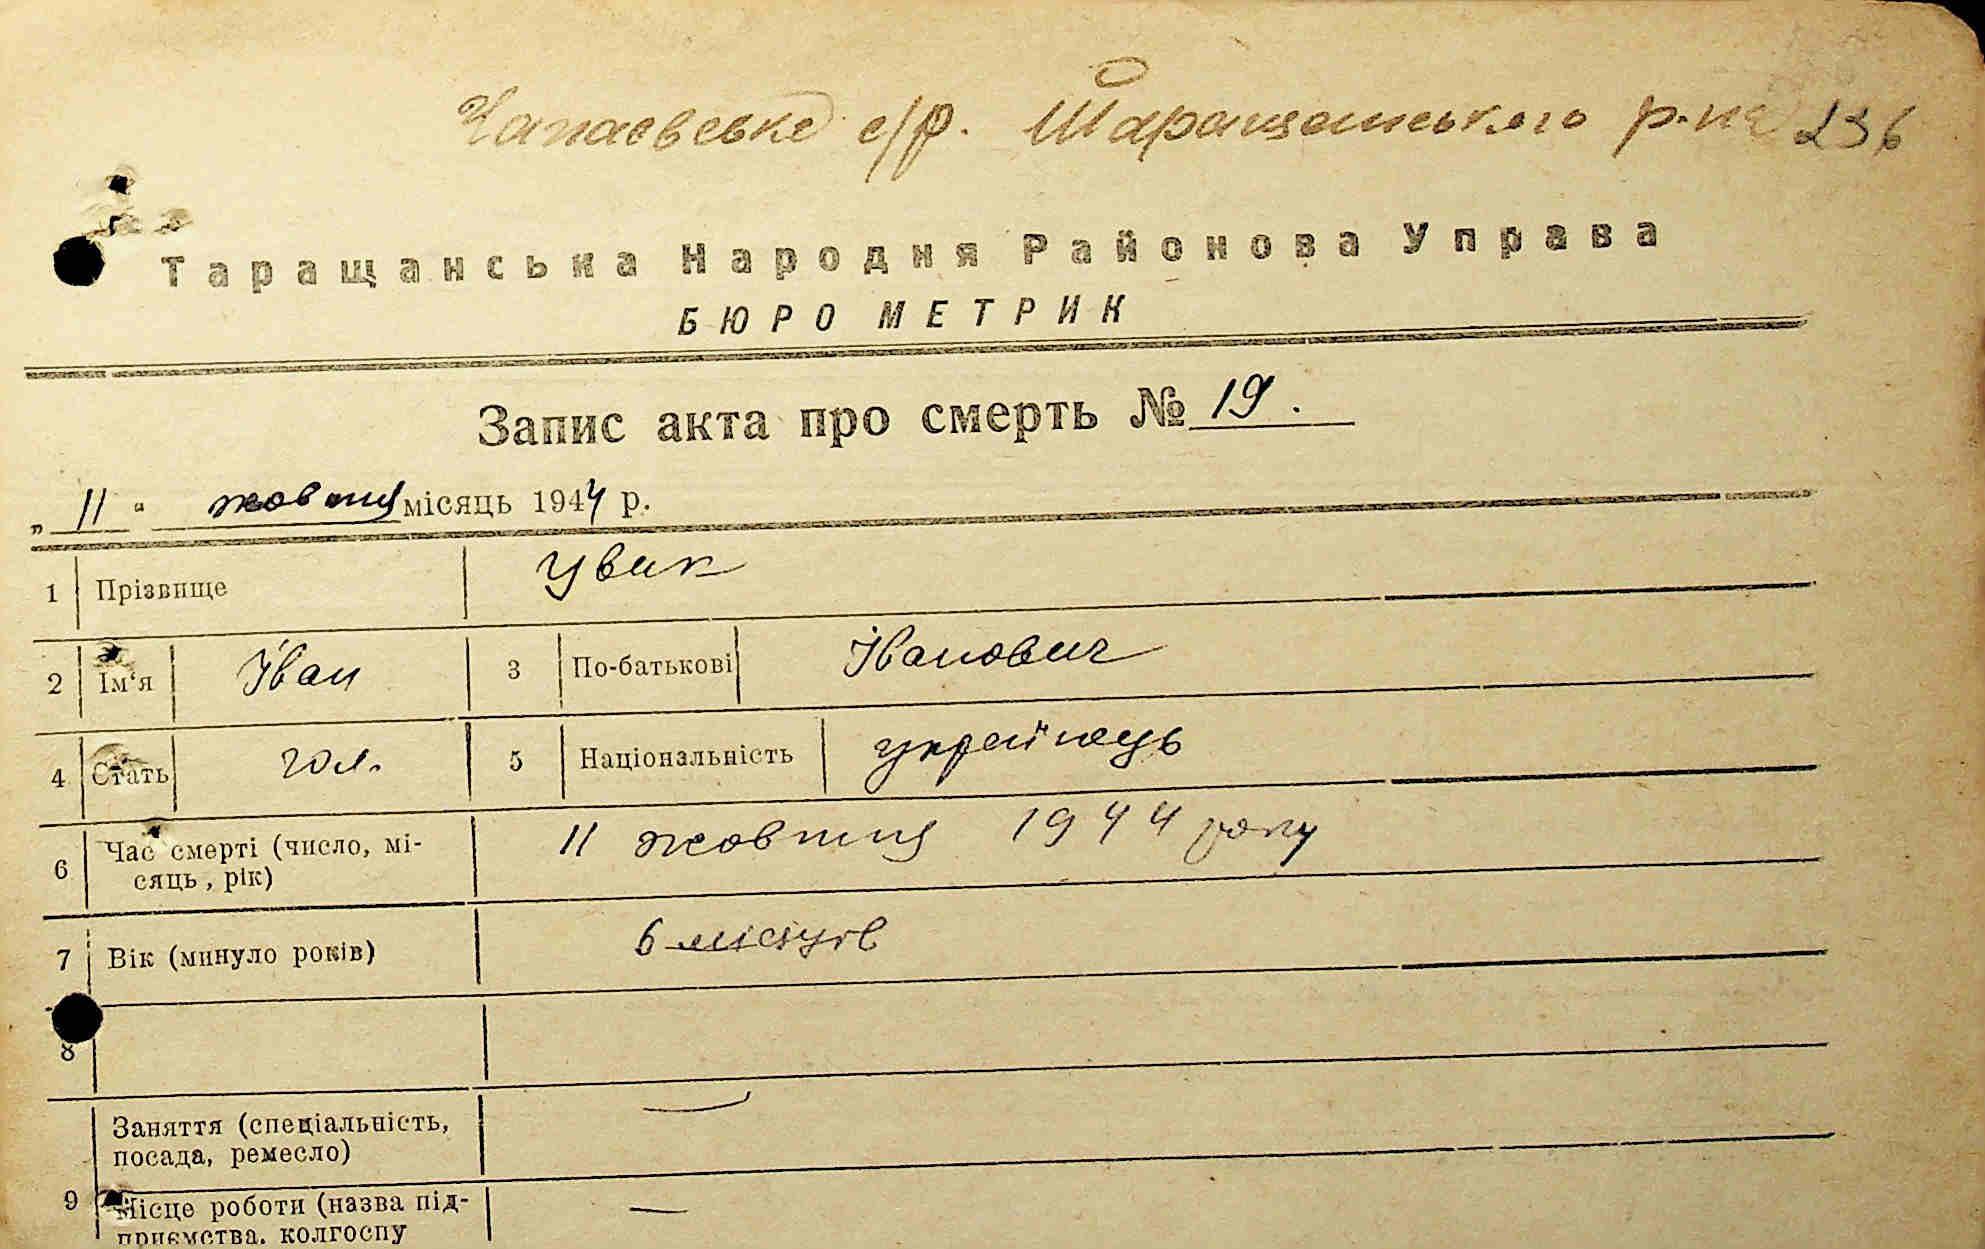 Чапаєвське с/р. Таращанського р-на 236
Таращанська Народня Районова Управа
БЮРО МЕТРИК
Запис акта про смерть № 19.
„ 11 " жовтня місяць 1944 р.
1 Прізвище Увик
2 Ім'я Іван 3 По-батькові Іванович
4 Стать чол. 5 Національність українець
6 Час смерті (число, мі-
сяць, рік) 11 жовтня 1944 року
7 Вік (минуло років) 6 місяців
8
Заняття (спеціальність, —
посада, ремесло)
9 Місце роботи (назва під- —
приємства, колгоспу